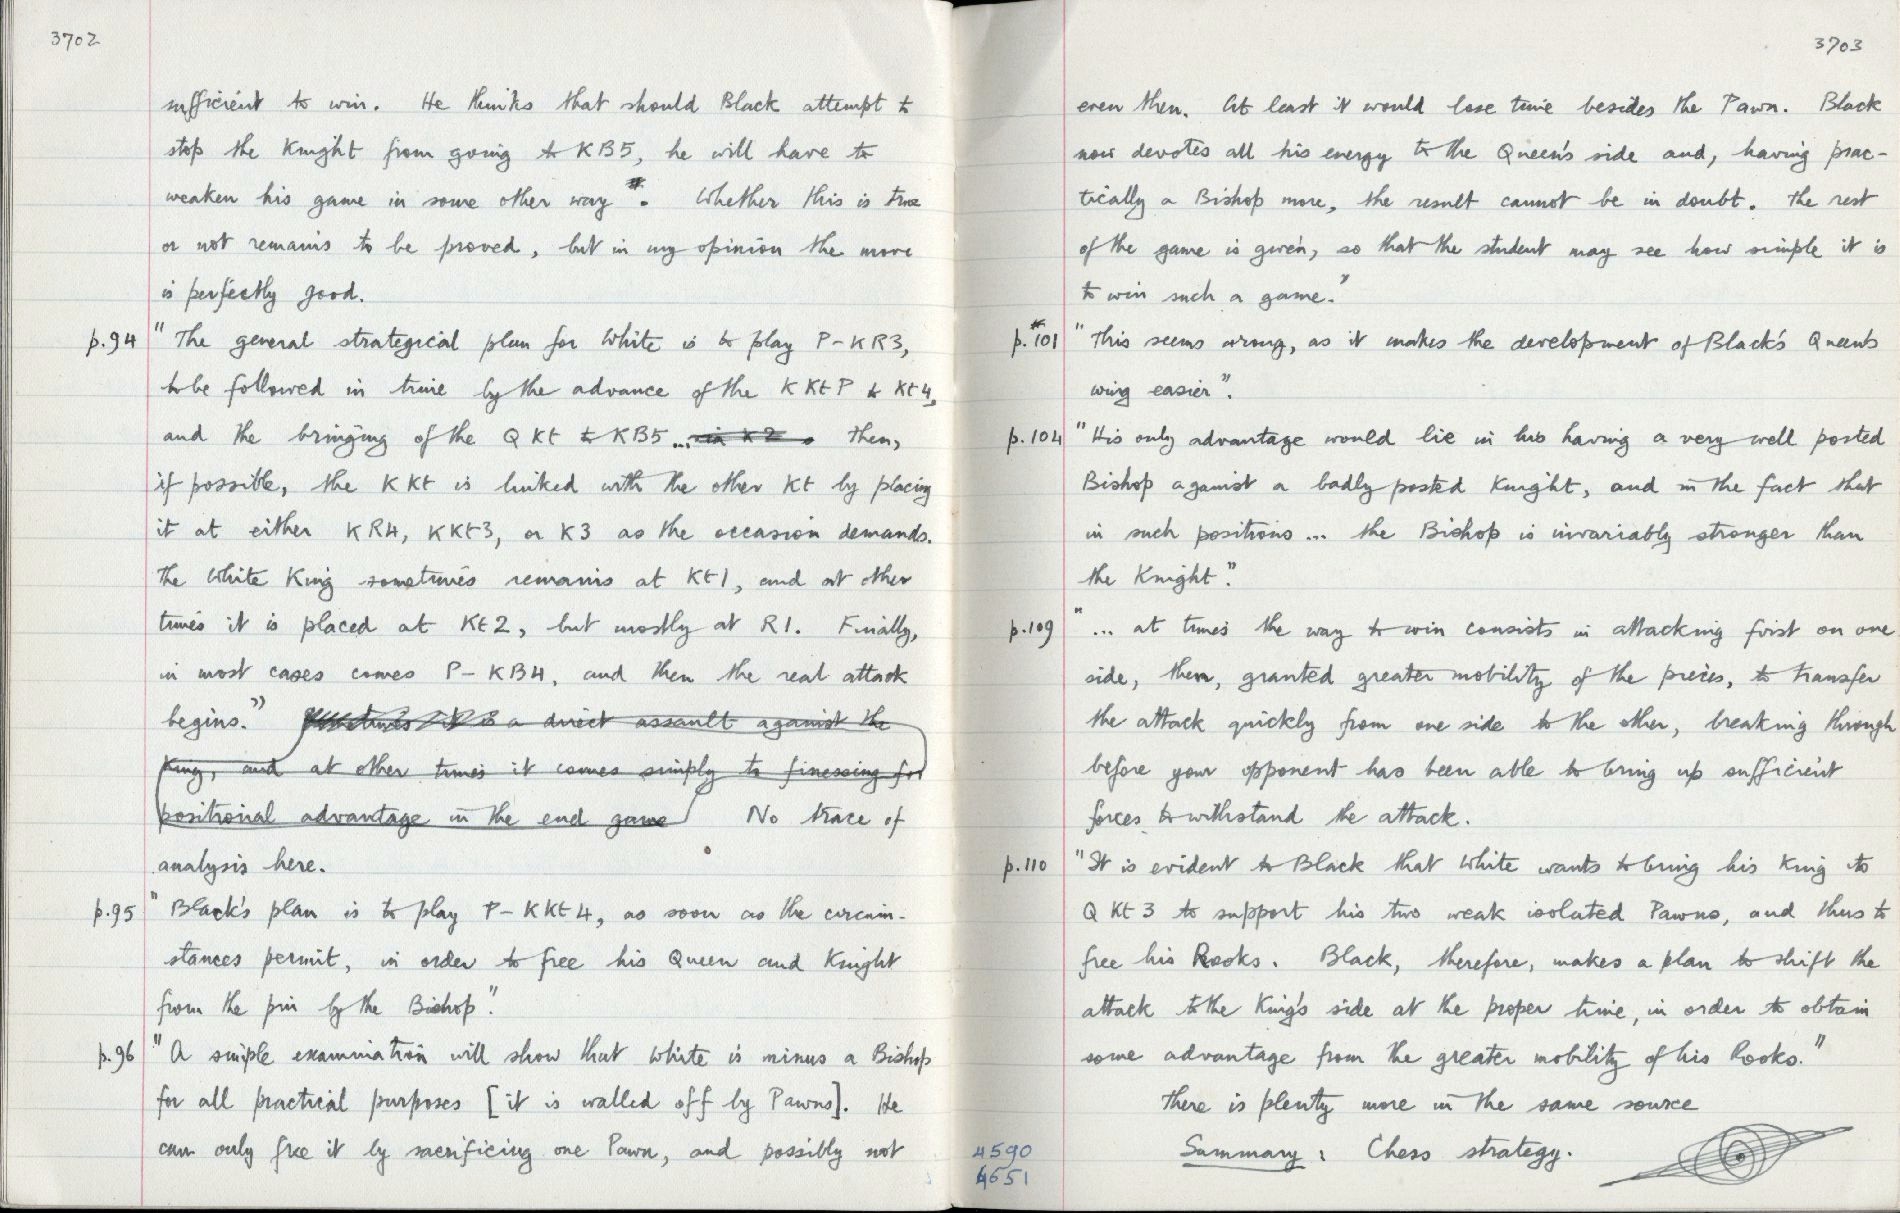 3702
sufficient to win. He thinks that should Black attempt to
stop the Knight from going to KB5, he will have to
weaken his game in some other way". Whether this is true
or not remains to be proved, but in my opinion the move
is perfectly good.
p.94 "The general strategical plan for White is to play P-KR3,
to be followed in time by the advance of the K Kt P to Kt4,
and the bringing of the Q Kt to KB5 ... in K2. Then,
if possible, the K Kt is linked with the other Kt by placing
it at either KR4, KKt3, or K3 as the occasion demands.
The White King sometimes remains at Kt1, and at other
times it is placed at Kt2, but mostly at R1. Finally,
in most cases comes P-KB4, and then the real attack
begins." Sometimes it is a direct assault against the
King, and at other times it comes simply to finessing for
positional advantage in the end game No trace of
analysis here.
p.95 "Black's plan is to play P-KKt4, as soon as the circum-
stances permit, in order to free his Queen and Knight
from the pin by the Bishop".
p.96 "A simple examination will show that White is minus a Bishop
for all practical purposes [it is walled off by Pawns]. He
can only free it by sacrificing one Pawn, and possibly not
3703
even then. At least it would lose time besides the Pawn. Black
now devotes all his energy to the Queen's side and, having prac-
tically a Bishop more, the result cannot be in doubt. The rest
of the game is given, so that the student may see how simple it is
to win such a game."
p.101 "This seems wrong, as it makes the development of Black's Queen's
wing easier".
p.104 "His only advantage would lie in his having a very well posted
Bishop against a badly posted Knight, and in the fact that
in such positions ... the Bishop is invariably stronger than
the Knight".
p.109 "... at times the way to win consists in attacking first on one
side, then, granted greater mobility of the pieces, to transfer
the attack quickly from one side to the other, breaking through
before your opponent has been able to bring up sufficient
forces to withstand the attack.
p.110 "It is evident to Black that White wants to bring his King to
Q Kt 3 to support his two weak isolated Pawns, and thus to
free his Rooks. Black, therefore, makes a plan to shift the
attack to the King's side at the proper time, in order to obtain
some advantage from the greater mobility of his Rooks."
There is plenty more in the same source
Summary: Chess strategy.
4590
4651